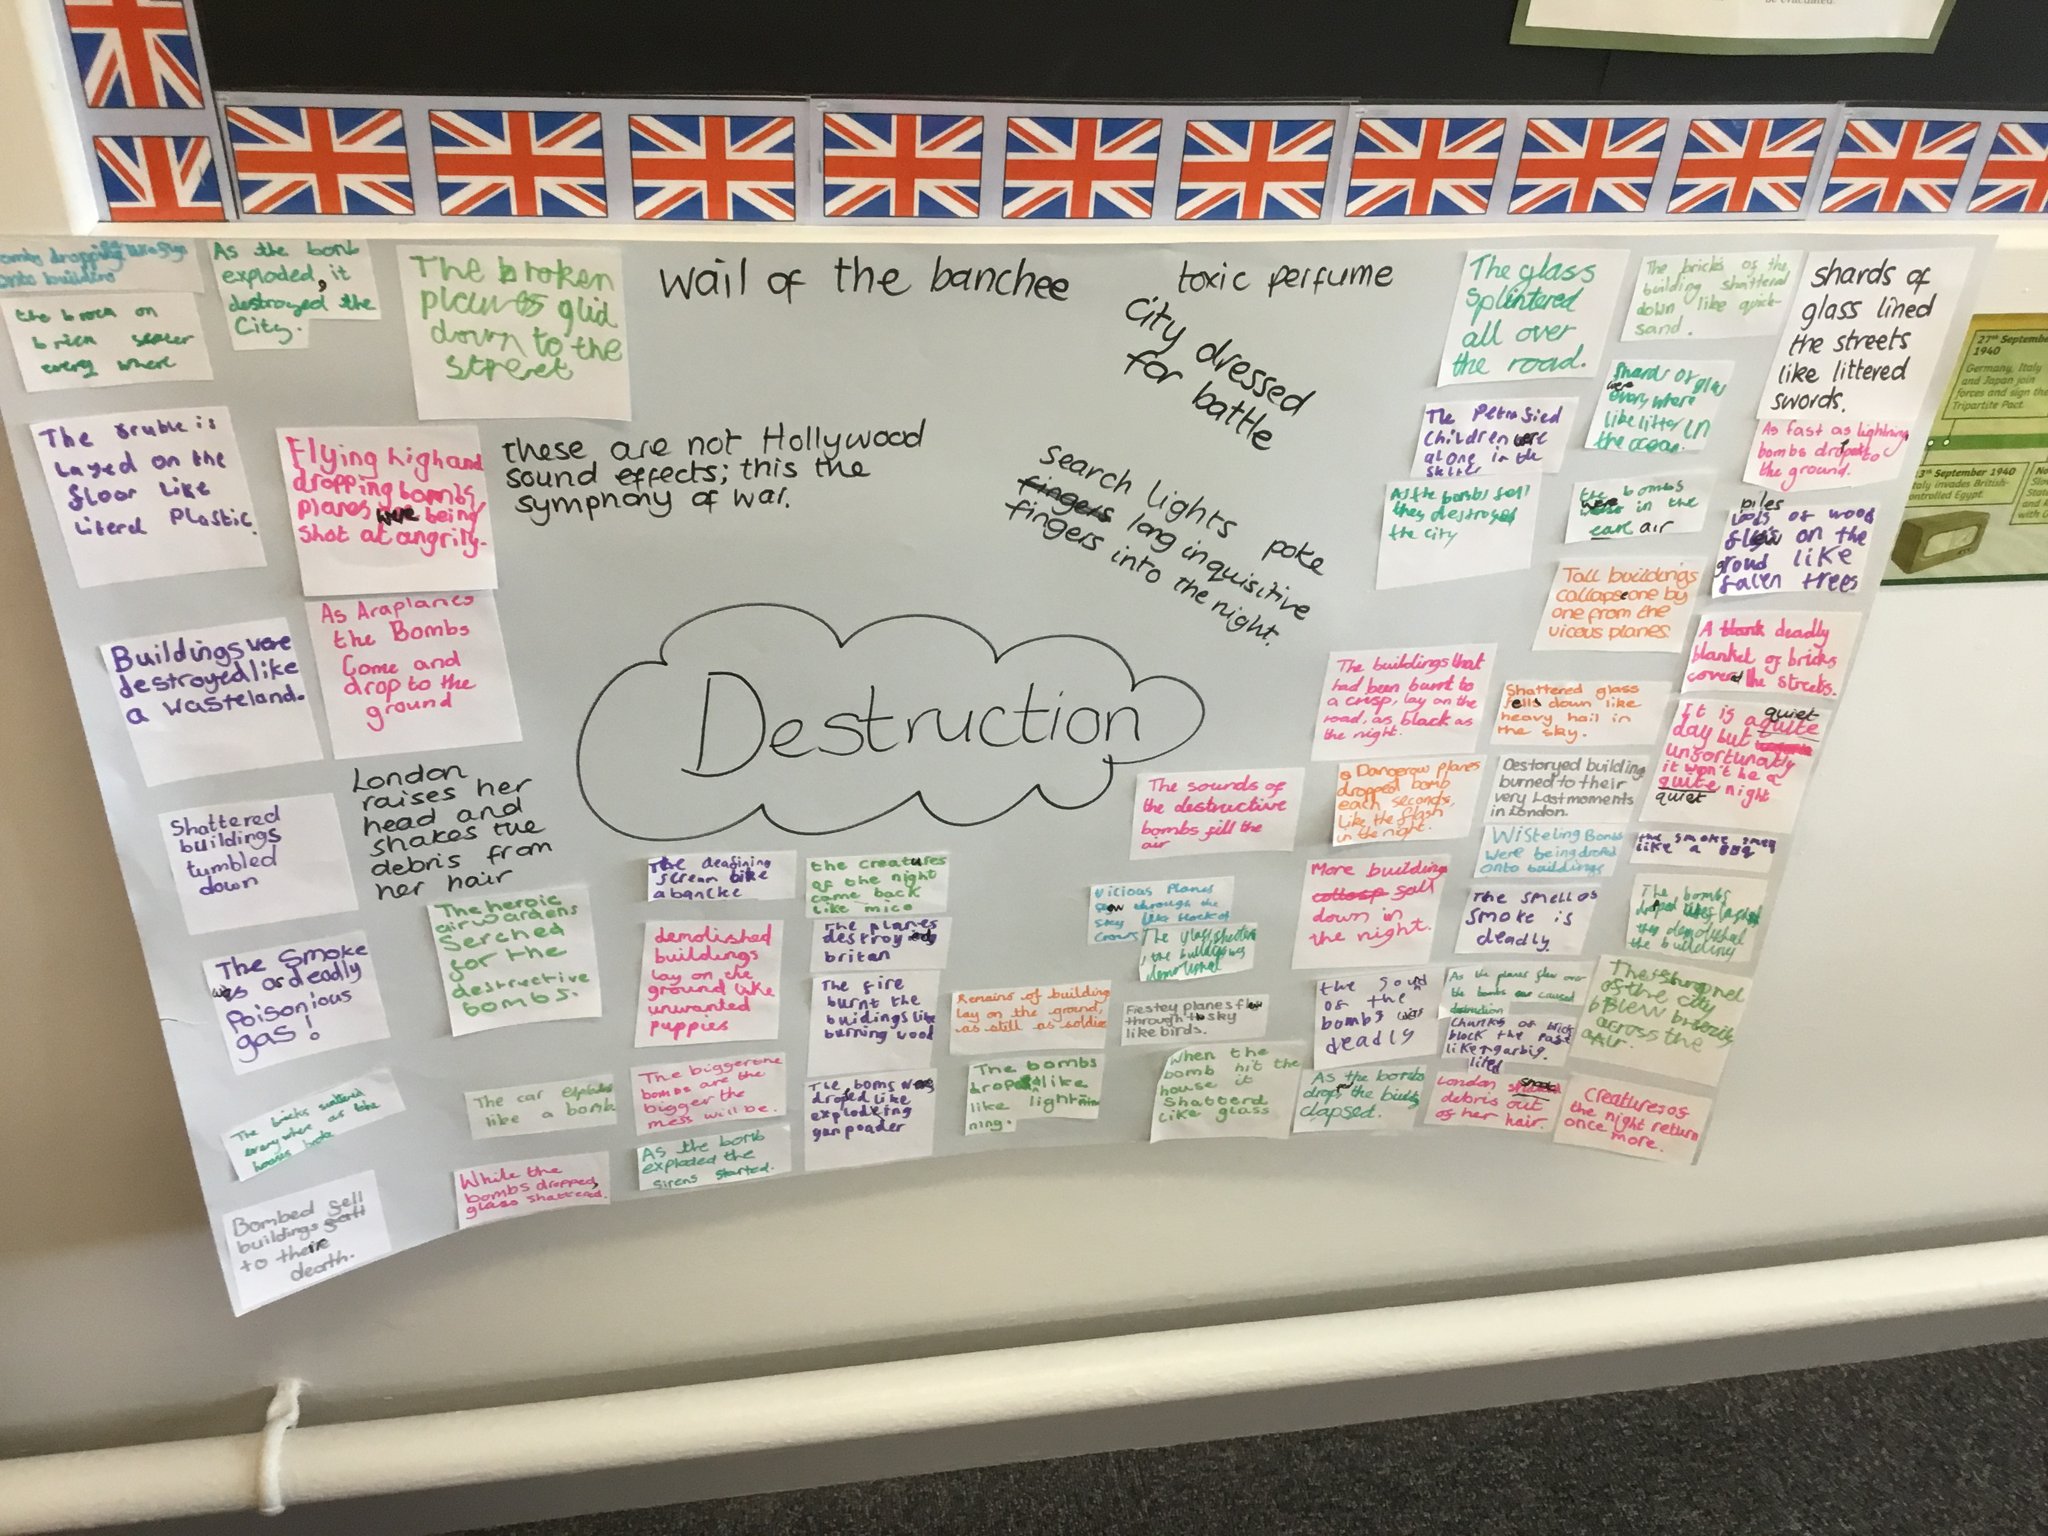 be evacuated.
As the bomb
exploded, it
destroyed the
City.
The broken
glid
down to the
street
wail of the banchee
toxic perfume
City dressed
for battle
The glass
Splintered
all over
the road.
The bricks of the
building shattered
down like quick-
sand.
shards of
glass lined
the streets
like littered
swords.
27th September
1940
Germany, Italy
and Japan join
forces and sign the
Tripartite Pact.
September 1940
Italy invades British-
controlled Egypt.
every where
The ruble is
layed on the
floor like
literal plastic.
Flying high and
dropping bombs,
planes were being
shot at angrily.
these are not Hollywood
sound effects; this the
symphony of war.
search lights poke
fingers long inquisitive
fingers into the night.
The Petrofied
Children were
alone in the
were
every where
like litter in
the ocean.
As fast as lightning
bombs dropt to
the ground.
As the bombs fell
they destroyed
the city
the bombs
were in the
eare air
piles
of wood
on the
groud like
falen trees
Tall buildings
collapse one by
one from the
vicous planes
A blank deadly
blanket of bricks
covered the streets.
As Araplanes
the Bombs
Come and
drop to the
ground
Buildings were
destroyed like
a wasteland.
Destruction
The buildings that
had been burnt to
a crisp, lay on the
road, as black as
the night.
Shattered glass
fells down like
heavy hail in
the sky.
It is a quite quiet
day but
unfortunatly
it won't be a
quite night
quiet
London
raises her
head and
shakes the
debris from
her hair
The sounds of
the destructive
bombs fill the
air
Dangerow planes
dropped bomb
each seconds,
Like the flash
in the night.
Destoryed building
burned to their
very Last moments
in London.
Shattered
buildings
tumbled
down
Wisteling Bombs
were being droped
onto buildings
the smoke smell
like a BBQ
The deafining
scream like
a bancke
the creatures
of the night
come back
like mice
More building
collosp fall
down in
the night.
The smell of
smoke is
deadly.
The bombs
the building
Vicious Planes
through the
sky like flock of
Crows
The heroic
air wardens
Serched
for the
destructive
bombs.
demolished
buildings
lay on the
ground like
unwanted
puppies
The planes
destroy
britan
The smoke
was as deadly
Poisonious
gas!
The fire
burnt the
buidings like
burning wood
Remains of building
lay on the ground,
as still as soldier
planes flew
through the sky
like birds.
the sound
of the
bombs was
deadly
As the planes flew over
the bombs caused
destruction
Chunks of brick
block the
like garbig.
of the city
Blew
across the
Air.
The car
like a bomb
The bigger the
bombs are the
bigger the
mess will be.
The boms was
droped like
explodeing
gun poader
The bombs
droped like
like lightni
ning.
When the
bomb hit the
house it
Shatterd
like glass
As the bombs
drops the
clapsed.
London
debris out
of her hair.
Creatures of
the night return
once more.
The bricks
every where as the
While the
bombs dropped,
glass shattered.
As the bomb
exploded the
sirens started.
Bombed fell
buildings
to their
death.